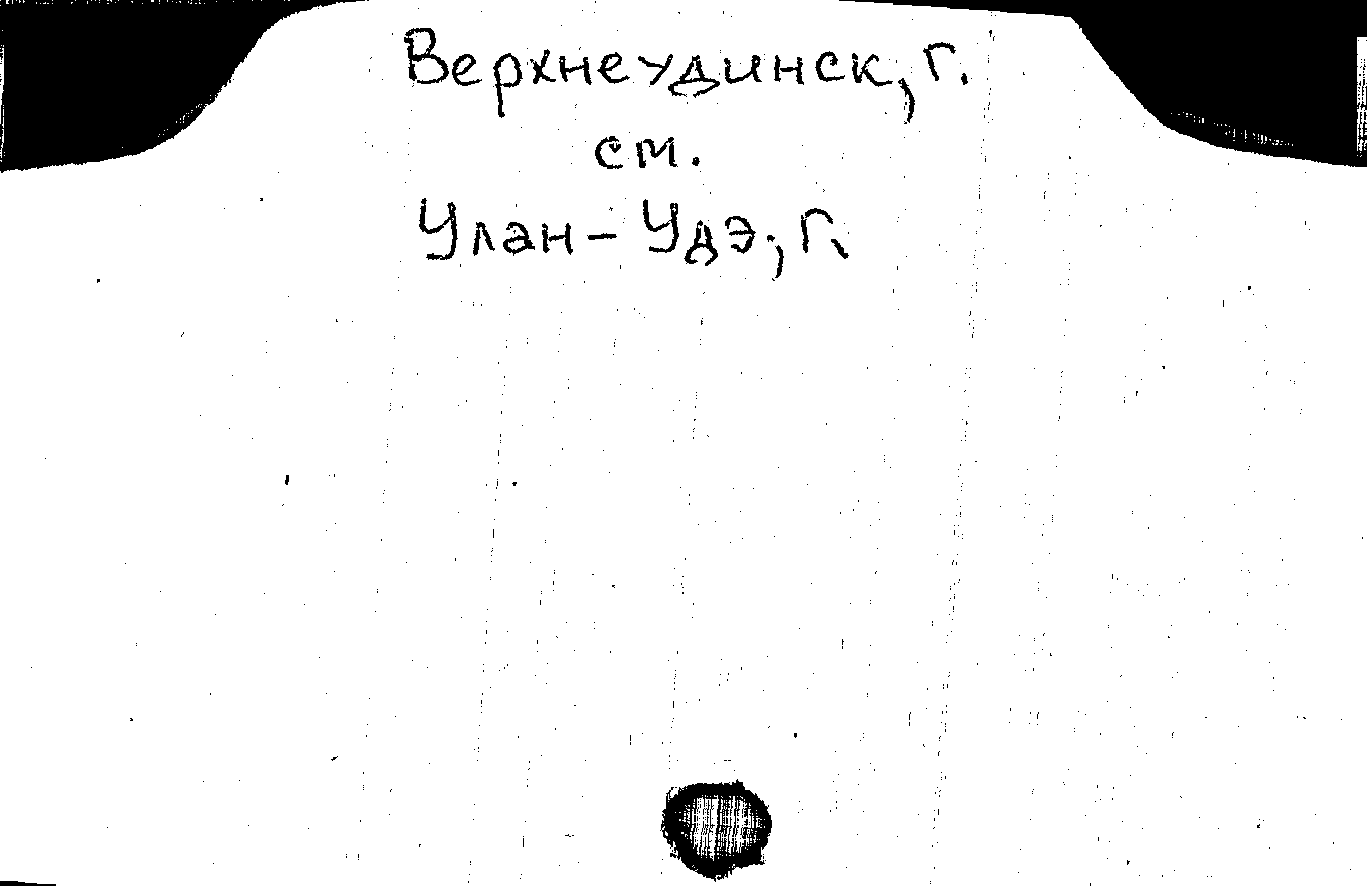 Верхнеудинск, г.
см.
Улан-Удэ, г.